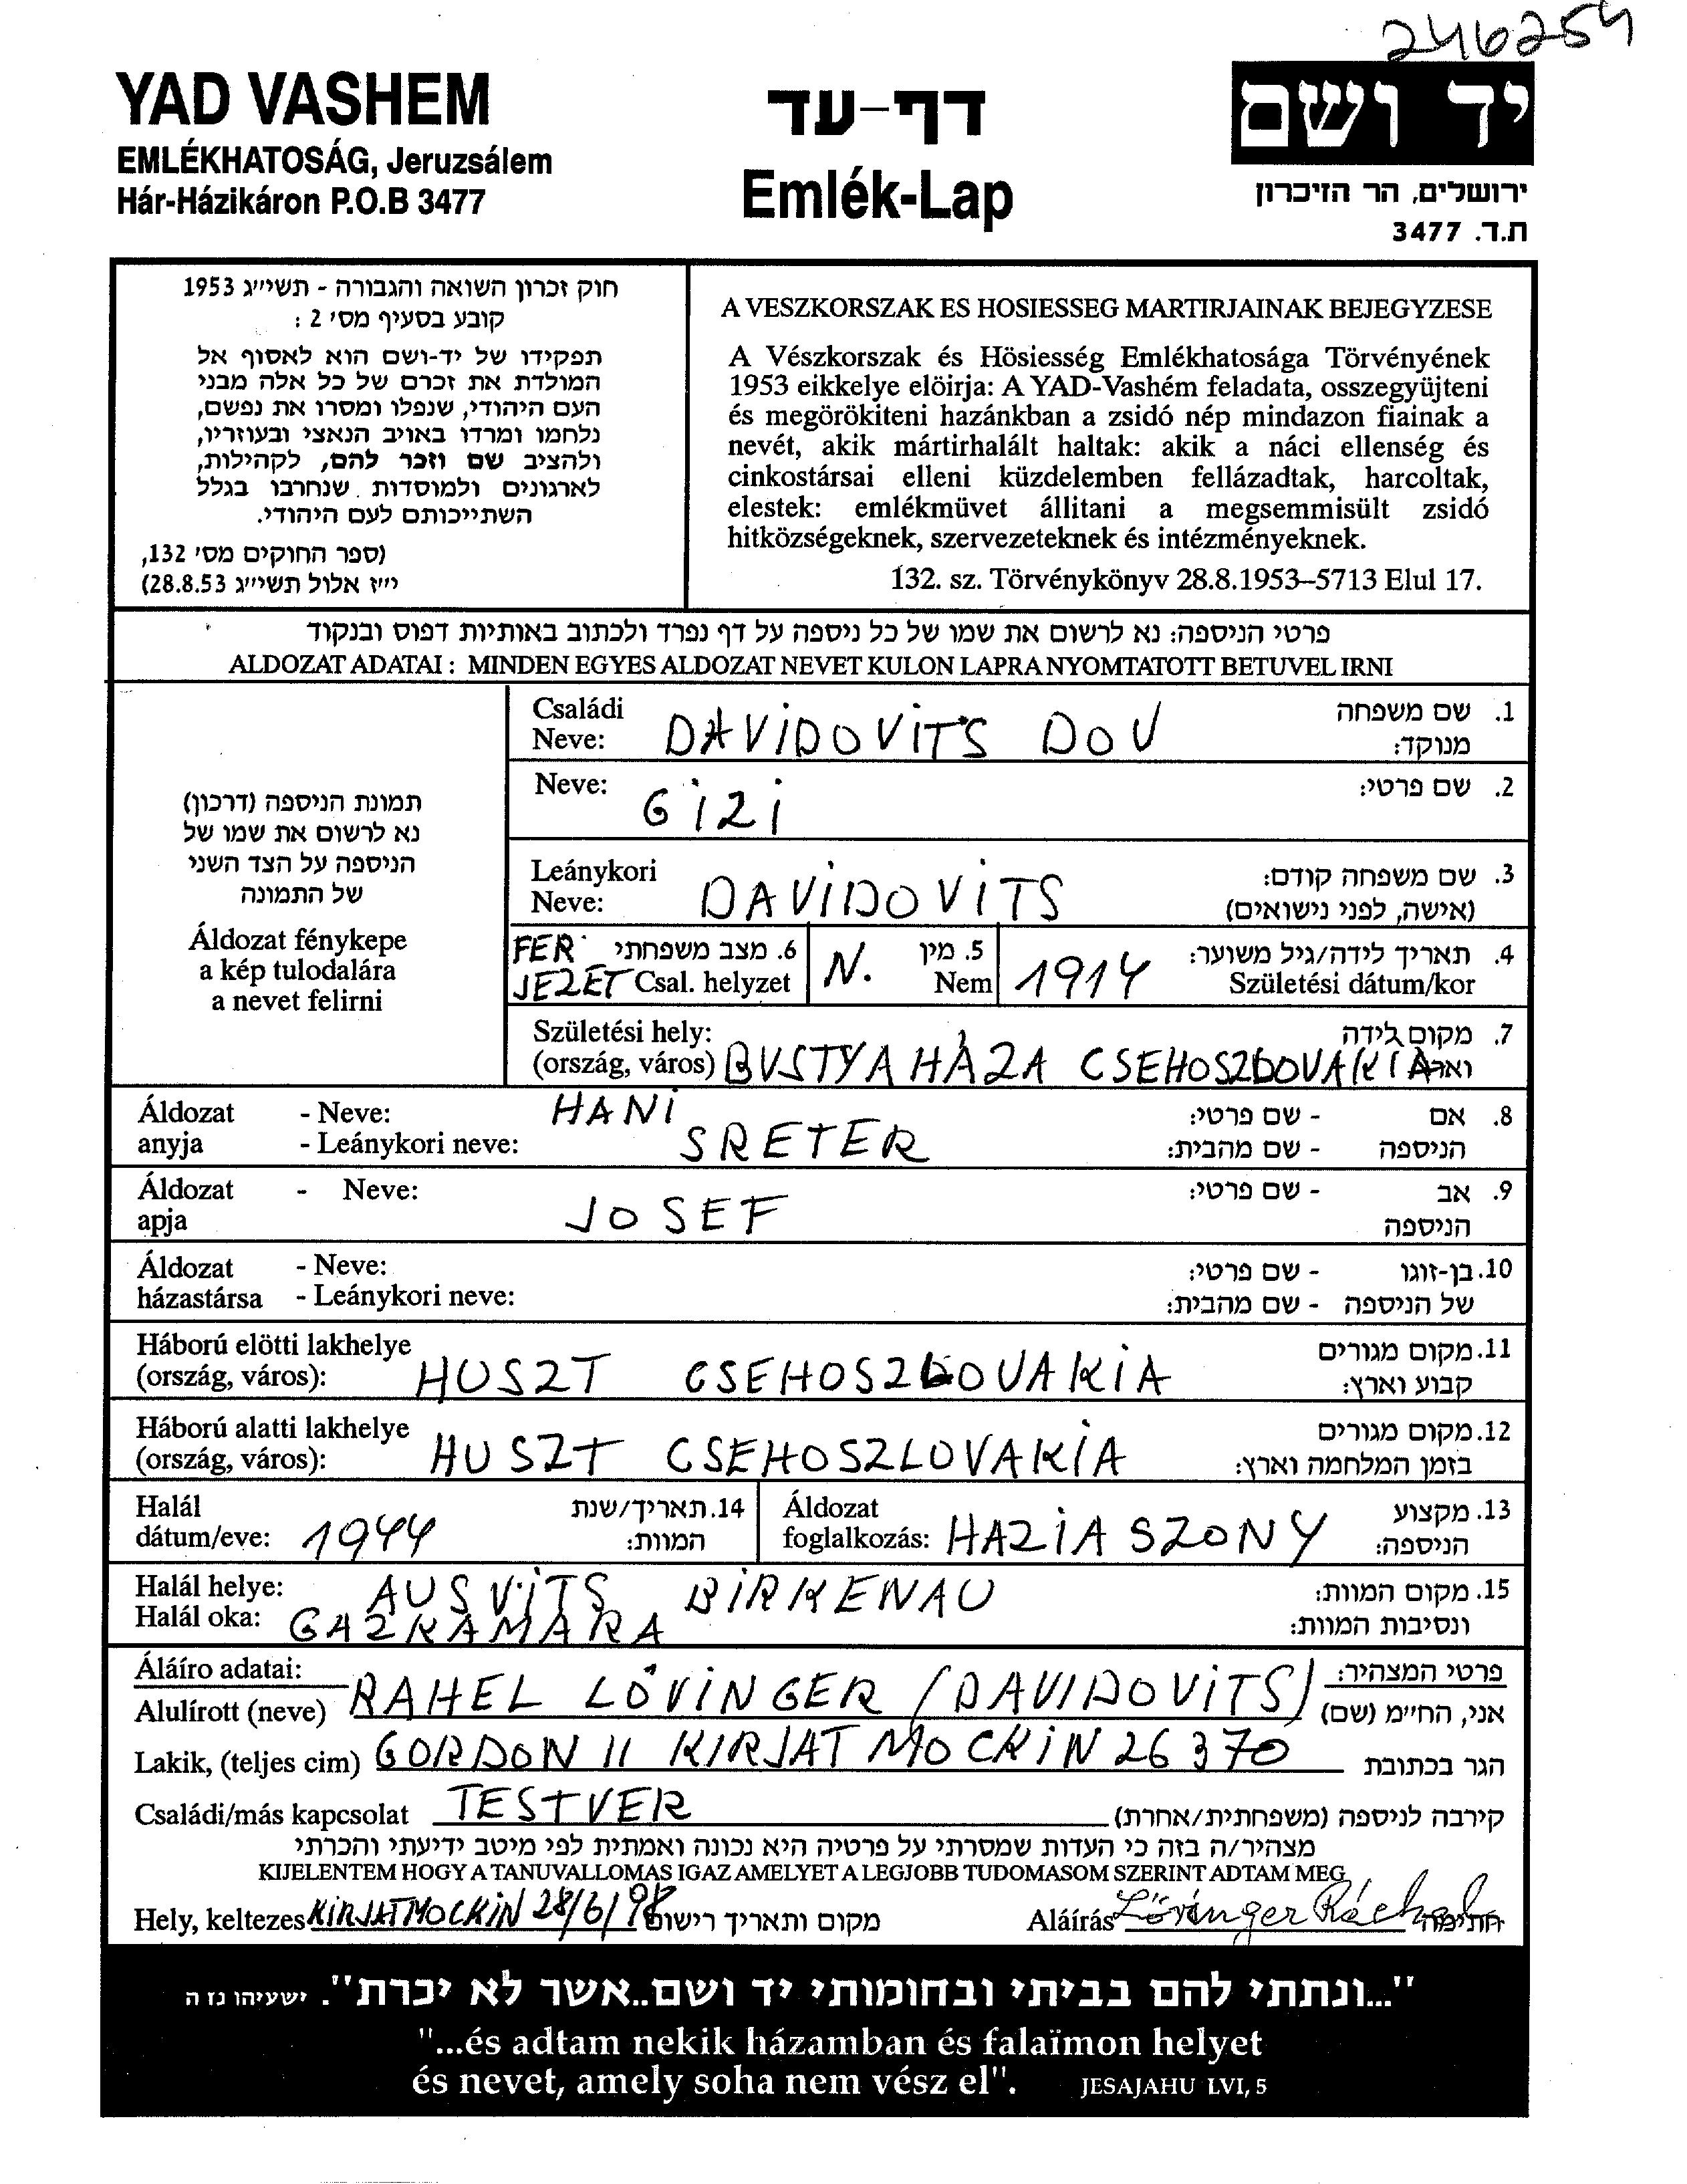 246254
YAD VASHEM
EMLÉKHATOSÁG, Jeruzsálem
Hár-Házikáron P.O.B 3477
דף-עד
Emlék-Lap
יד ושם
ירושלים, הר הזיכרון
ת.ד. 3477
חוק זכרון השואה והגבורה - תשי״ג 1953
קובע בסעיף מס׳ 2 :
תפקידו של יד-ושם הוא לאסוף אל
המולדת את זכרם של כל אלה מבני
העם היהודי, שנפלו ומסרו את נפשם,
נלחמו ומרדו באויב הנאצי ובעוזריו,
ולהציב שם וזכר להם, לקהילות,
לארגונים ולמוסדות שנחרבו בגלל
השתייכותם לעם היהודי.
(ספר החוקים מס׳ 132,
י״ז אלול תשי״ג 28.8.53)
A VESZKORSZAK ES HOSIESSEG MARTIRJAINAK BEJEGYZESE
A Vészkorszak és Hösiesség Emlékhatosága Törvényének
1953 eikkelye elöirja: A YAD-Vashém feladata, osszegyüjteni
és megörökiteni hazánkban a zsidó nép mindazon fiainak a
nevét, akik mártirhalált haltak: akik a náci ellenség és
cinkostársai elleni küzdelemben fellázadtak, harcoltak,
elestek: emlékmüvet állitani a megsemmisült zsidó
hitközségeknek, szervezeteknek és intézményeknek.
132. sz. Törvénykönyv 28.8.1953–5713 Elul 17.
פרטי הניספה: נא לרשום את שמו של כל ניספה על דף נפרד ולכתוב באותיות דפוס ובנקוד
ALDOZAT ADATAI : MINDEN EGYES ALDOZAT NEVET KULON LAPRA NYOMTATOTT BETUVEL IRNI
תמונת הניספה (דרכון)
נא לרשום את שמו של
הניספה על הצד השני
של התמונה
Áldozat fénykepe
a kép tulodalára
a nevet felirni
Családi Neve: DAVIDOVITS DOV 1. שם משפחה מנוקד:
Neve: GIZI 2. שם פרטי:
Leánykori Neve: DAVIDOVITS 3. שם משפחה קודם: (אישה, לפני נישואים)
FERJEZET 6. מצב משפחתי Csal. helyzet N. 5. מין Nem 1914 4. תאריך לידה/גיל משוער: Születési dátum/kor
Születési hely: (ország, város) BUSTYAHÁZA CSEHOSZLOVAKIA 7. מקום לידה וארץ
Áldozat anyja - Neve: HANI - שם פרטי: 8. אם
- Leánykori neve: SRETER - שם מהבית: הניספה
Áldozat apja - Neve: JOSEF - שם פרטי: 9. אב הניספה
Áldozat - Neve: - שם פרטי: 10. בן-זוגו
házastársa - Leánykori neve: - שם מהבית: של הניספה
Háború elötti lakhelye (ország, város): HUSZT CSEHOSZLOVAKIA 11. מקום מגורים קבוע וארץ:
Háború alatti lakhelye (ország, város): HUSZT CSEHOSZLOVAKIA 12. מקום מגורים בזמן המלחמה וארץ:
Halál dátum/eve: 1944 14. תאריך/שנת המוות: Áldozat foglalkozás: HAZIASZONY 13. מקצוע הניספה:
Halál helye: AUSVITS BIRKENAU 15. מקום המוות:
Halál oka: GAZKAMARA ונסיבות המוות:
Áláíro adatai: פרטי המצהיר:
Alulírott (neve) RAHEL LÖVINGER (DAVIDOVITS) אני, החי״מ (שם)
Lakik, (teljes cim) GORDON 11 KIRJAT MOCKIN 26370 הגר בכתובת
Családi/más kapcsolat TESTVER קירבה לניספה (משפחתית/אחרת)
מצהיר/ה בזה כי העדות שמסרתי על פרטיה היא נכונה ואמתית לפי מיטב ידיעתי והכרתי
KIJELENTEM HOGY A TANUVALLOMAS IGAZ AMELYET A LEGJOBB TUDOMASOM SZERINT ADTAM MEG
Hely, keltezes KIRJAT MOCKIN 28/6/98 מקום ותאריך רישום Aláírás Lövinger Ráchel חתימה
"...ונתתי להם בביתי ובחומותי יד ושם..אשר לא יכרת". ישעיהו נז ה
"...és adtam nekik házamban és falaïmon helyet
és nevet, amely soha nem vész el". JESAJAHU LVI, 5